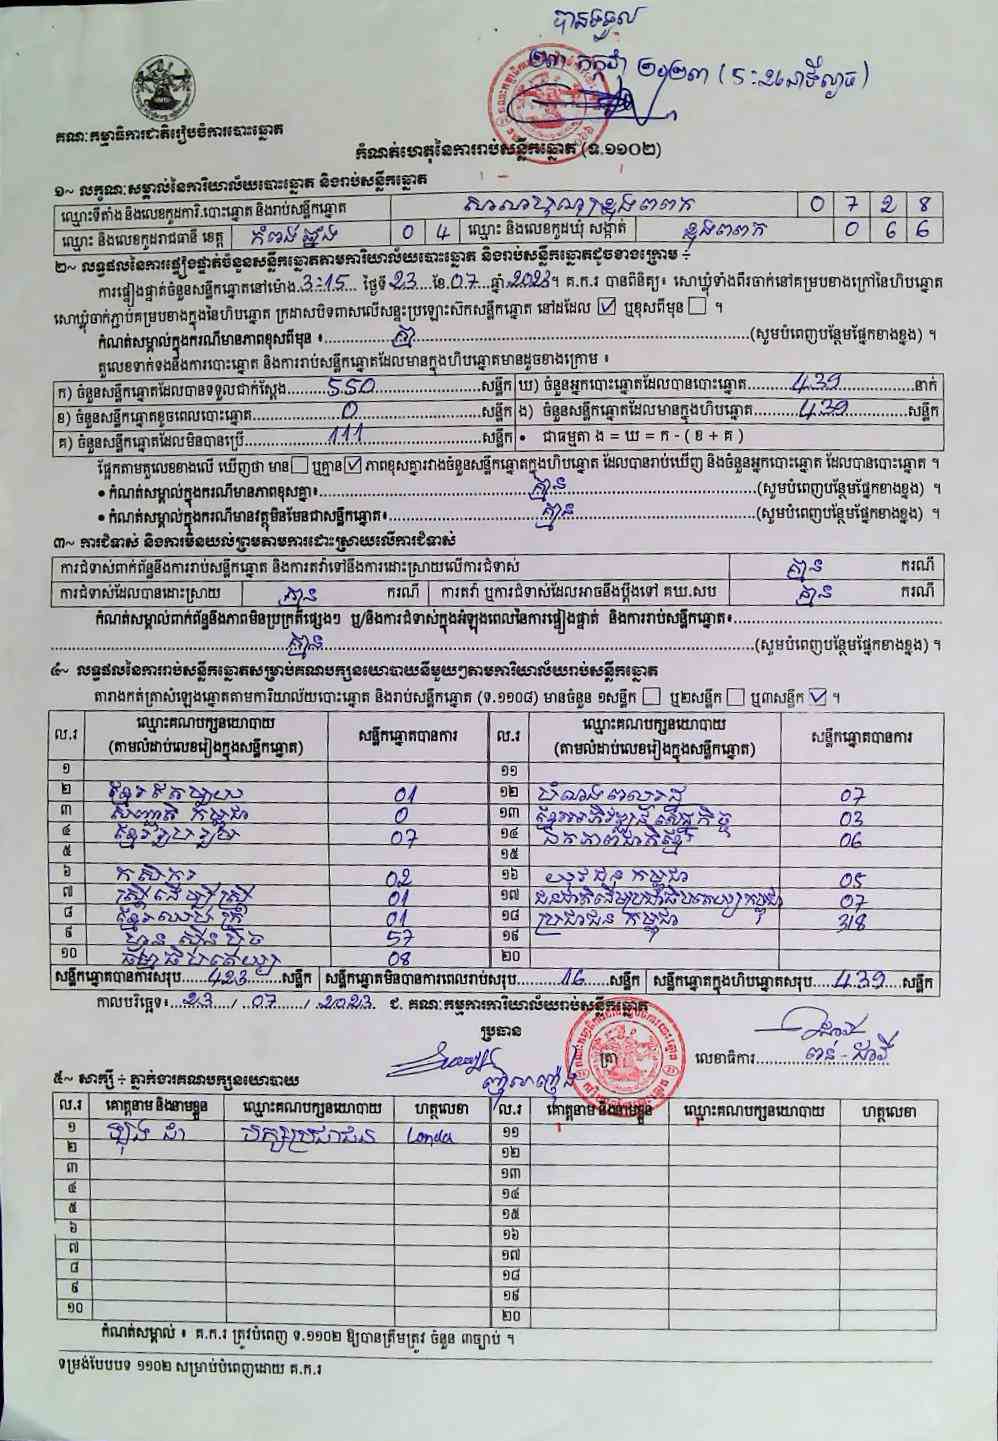 បានទទួល
២៣ កក្កដា ២០២៣ (5:
គណៈកម្មាធិការជាតិរៀបចំការបោះឆ្នោត
កំណត់ហេតុនៃការរាប់សន្លឹកឆ្នោត (ទ.១១០២)
១~ លក្ខណៈសម្គាល់នៃការិយាល័យបោះឆ្នោត និងរាប់សន្លឹកឆ្នោត
ឈ្មោះទីតាំង និងលេខកូដការិ.បោះឆ្នោត និងរាប់សន្លឹកឆ្នោត សាលាឃុំ ខ្នុងពពក 0 7 2 8
ឈ្មោះ និងលេខកូដរាជធានី ខេត្ត កំពង់ឆ្នាំង 0 4 ឈ្មោះ និងលេខកូដឃុំ សង្កាត់ ខ្នុងពពក 0 6 6
២~ លទ្ធផលនៃការផ្ទៀងផ្ទាត់ចំនួនសន្លឹកឆ្នោតតាមការិយាល័យបោះឆ្នោត និងរាប់សន្លឹកឆ្នោតដូចខាងក្រោម ÷
ការផ្ទៀងផ្ទាត់ចំនួនសន្លឹកឆ្នោតនៅម៉ោង 3:15 ថ្ងៃទី 23 ខែ 07 ឆ្នាំ 2023។ គ.ក.រ បានពិនិត្យ៖ សោឃ្លុំទាំងពីរចាក់នៅគម្របខាងក្រៅនៃហិបឆ្នោត
សោឃ្លុំចាក់ភ្ជាប់គម្របខាងក្នុងនៃហិបឆ្នោត ក្រដាសបិទពាសលើសន្ទះប្រឡោះស៊កសន្លឹកឆ្នោត នៅដដែល ☑ ឬខុសពីមុន ☐ ។
កំណត់សម្គាល់ក្នុងករណីមានភាពខុសពីមុន ៖ គ្មាន (សូមបំពេញបន្ថែមផ្នែកខាងខ្នង) ។
តួលេខទាក់ទងនឹងការបោះឆ្នោត និងការរាប់សន្លឹកឆ្នោតដែលមានក្នុងហិបឆ្នោតមានដូចខាងក្រោម ៖
ក) ចំនួនសន្លឹកឆ្នោតដែលបានទទួលជាក់ស្តែង 550 សន្លឹក ឃ) ចំនួនអ្នកបោះឆ្នោតដែលបានបោះឆ្នោត 439 នាក់
ខ) ចំនួនសន្លឹកឆ្នោតខូចពេលបោះឆ្នោត 0 សន្លឹក ង) ចំនួនសន្លឹកឆ្នោតដែលមានក្នុងហិបឆ្នោត 439 សន្លឹក
គ) ចំនួនសន្លឹកឆ្នោតដែលមិនបានប្រើ 111 សន្លឹក • ជាធម្មតា ង = ឃ = ក - ( ខ + គ )
ផ្អែកតាមតួលេខខាងលើ ឃើញថា មាន ☐ ឬគ្មាន ☑ ភាពខុសគ្នារវាងចំនួនសន្លឹកឆ្នោតក្នុងហិបឆ្នោត ដែលបានរាប់ឃើញ និងចំនួនអ្នកបោះឆ្នោត ដែលបានបោះឆ្នោត ។
• កំណត់សម្គាល់ក្នុងករណីមានភាពខុសគ្នា៖ គ្មាន (សូមបំពេញបន្ថែមផ្នែកខាងខ្នង) ។
• កំណត់សម្គាល់ក្នុងករណីមានវត្ថុមិនមែនជាសន្លឹកឆ្នោត៖ គ្មាន (សូមបំពេញបន្ថែមផ្នែកខាងខ្នង) ។
៣~ ការជំទាស់ និងការមិនយល់ព្រមតាមការដោះស្រាយលើការជំទាស់
ការជំទាស់ពាក់ព័ន្ធនឹងការរាប់សន្លឹកឆ្នោត និងការតវ៉ាទៅនឹងការដោះស្រាយលើការជំទាស់ គ្មាន ករណី
ការជំទាស់ដែលបានដោះស្រាយ គ្មាន ករណី ការតវ៉ា ឬការជំទាស់ដែលអាចនឹងប្តឹងទៅ គឃ.សប គ្មាន ករណី
កំណត់សម្គាល់ពាក់ព័ន្ធនឹងភាពមិនប្រក្រតីផ្សេងៗ ឬ/និងការជំទាស់ក្នុងអំឡុងពេលនៃការផ្ទៀងផ្ទាត់ និងការរាប់សន្លឹកឆ្នោត៖
គ្មាន (សូមបំពេញបន្ថែមផ្នែកខាងខ្នង) ។
៤~ លទ្ធផលនៃការរាប់សន្លឹកឆ្នោតសម្រាប់គណបក្សនយោបាយនីមួយៗតាមការិយាល័យរាប់សន្លឹកឆ្នោត
តារាងកត់ត្រាសំឡេងឆ្នោតតាមការិយាល័យបោះឆ្នោត និងរាប់សន្លឹកឆ្នោត (ទ.១១០៨) មានចំនួន ១សន្លឹក ☐ ឬ២សន្លឹក ☐ ឬ៣សន្លឹក ☑ ។
ល.រ ឈ្មោះគណបក្សនយោបាយ (តាមលំដាប់លេខរៀងក្នុងសន្លឹកឆ្នោត) សន្លឹកឆ្នោតបានការ ល.រ ឈ្មោះគណបក្សនយោបាយ (តាមលំដាប់លេខរៀងក្នុងសន្លឹកឆ្នោត) សន្លឹកឆ្នោតបានការ
១ ១១
២ ខ្មែរឯកភាព 01 ១២ 07
៣ សញ្ជាតិ កម្ពុជា 0 ១៣ ខ្មែរអភិវឌ្ឍន៍សេដ្ឋកិច្ច 03
៤ ខ្មែររួបរួម 07 ១៤ ឯកភាពជាតិខ្មែរ 06
៥ ១៥
៦ កសិករ 02 ១៦ យុវជន កម្ពុជា 05
៧ ស្ត្រីដើម្បីស្ត្រី 01 ១៧ ជនជាតិដើមប្រជាធិបតេយ្យកម្ពុជា 07
៨ ខ្មែរឈប់ក្រ 01 ១៨ ប្រជាជន កម្ពុជា 318
៩ ហ្វ៊ុន ស៊ិន ប៉ិច 57 ១៩
១០ ធម្មាធិបតេយ្យ 08 ២០
សន្លឹកឆ្នោតបានការសរុប 423 សន្លឹក សន្លឹកឆ្នោតមិនបានការពេលរាប់សរុប 16 សន្លឹក សន្លឹកឆ្នោតក្នុងហិបឆ្នោតសរុប 439 សន្លឹក
កាលបរិច្ឆេទ៖ 23 / 07 / 2023 ជ. គណៈកម្មការការិយាល័យរាប់សន្លឹកឆ្នោត
ប្រធាន
ត្រា លេខាធិការ
៥~ សាក្សី ÷ ភ្នាក់ងារគណបក្សនយោបាយ
ល.រ គោត្តនាម និងនាមខ្លួន ឈ្មោះគណបក្សនយោបាយ ហត្ថលេខា ល.រ គោត្តនាម និងនាមខ្លួន ឈ្មោះគណបក្សនយោបាយ ហត្ថលេខា
១ បក្សប្រជាជន ១១
២ ១២
៣ ១៣
៤ ១៤
៥ ១៥
៦ ១៦
៧ ១៧
៨ ១៨
៩ ១៩
១០ ២០
កំណត់សម្គាល់ ៖ គ.ក.រ ត្រូវបំពេញ ទ.១១០២ ឱ្យបានត្រឹមត្រូវ ចំនួន ៣ច្បាប់ ។
ទម្រង់បែបបទ ១១០២ សម្រាប់បំពេញដោយ គ.ក.រ